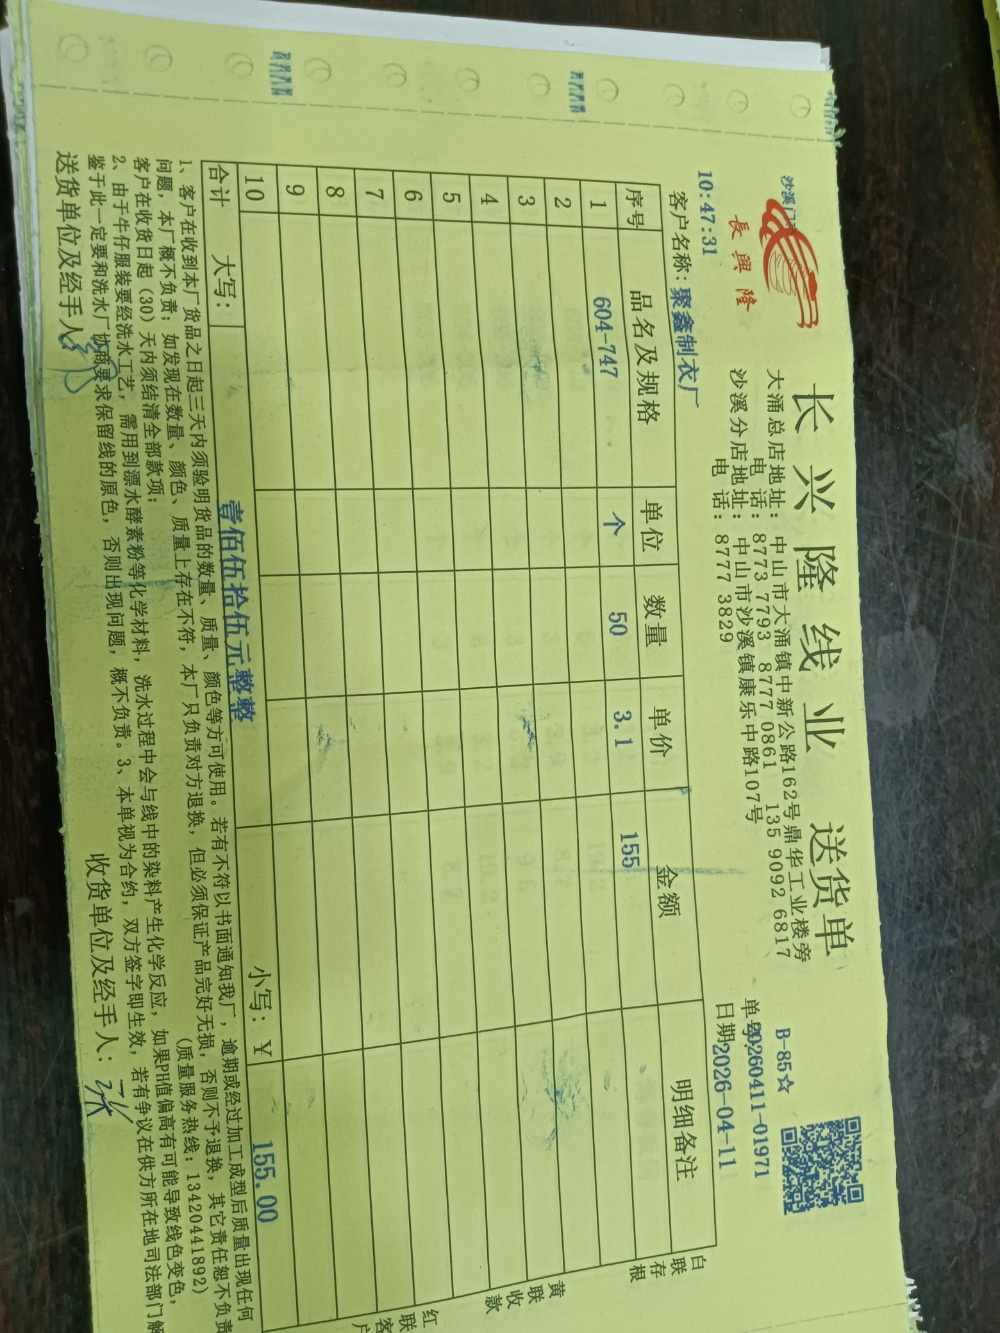 長興隆
长兴隆线业 送货单
大涌总店地址：中山市大涌镇中新公路162号鼎华工业楼旁
电 话：8773 7793 8777 0861 135 9092 6817
沙溪分店地址：中山市沙溪镇康乐中路107号
电 话：8777 3829
B-85☆
单号：20260411-01971
日期：2026-04-11
10:47:31
客户名称：聚鑫制衣厂
序号 品名及规格 单位 数量 单价 金额 明细备注
1 604-747 个 50 3.1 155
2
3
4
5
6
7
8
9
10
合计 大写： 壹佰伍拾伍元整整 小写：￥ 155.00
白联存根
黄联收款
红联客户
1、客户在收到本厂货品之日起三天内须验明货品的数量、质量、颜色等方可使用。若有不符以书面通知我厂，逾期或经过加工成型后质量出现任何
问题，本厂概不负责；如发现在数量、颜色、质量上存在不符，本厂只负责对方退换，但必须保证产品完好无损，否则不予退换，其它责任恕不负责
客户在收货日起（30）天内须结清全部款项； （质量服务热线：13420441892）
2、由于牛仔服装要经洗水工艺，需用到漂水酵素粉等化学材料，洗水过程中会与线中的染料产生化学反应，如果PH值偏高有可能导致线色变色，
鉴于此一定要和洗水厂协商要求保留线的原色，否则出现问题，概不负责。3、本单视为合约，双方签字即生效，若有争议在供方所在地司法部门解
送货单位及经手人 收货单位及经手人：